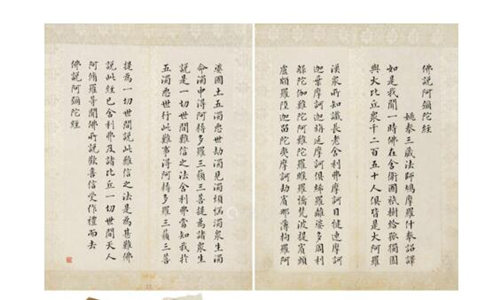 佛說阿彌陀經
姚秦三藏法師鳩摩羅什奉詔譯
如是我聞一時佛在舍衛國祇樹給孤獨園
與大比丘眾千二百五十人俱皆是大阿羅
漢眾所知識長老舍利弗摩訶目犍連摩訶
迦葉摩訶迦旃延摩訶俱絺羅離婆多周利
槃陀伽難陀阿難陀羅睺羅憍梵波提賓頭
盧頗羅墮迦留陀夷摩訶劫賓那薄拘羅阿
婆國土五濁惡世劫濁見濁煩惱濁眾生濁
命濁中得阿耨多羅三藐三菩提為諸眾生
說是一切世間難信之法舍利弗當知我於
五濁惡世行此難事得阿耨多羅三藐三菩
提為一切世間說此難信之法是為甚難佛
說此經已舍利弗及諸比丘一切世間天人
阿脩羅等聞佛所說歡喜信受作禮而去
佛說阿彌陀經